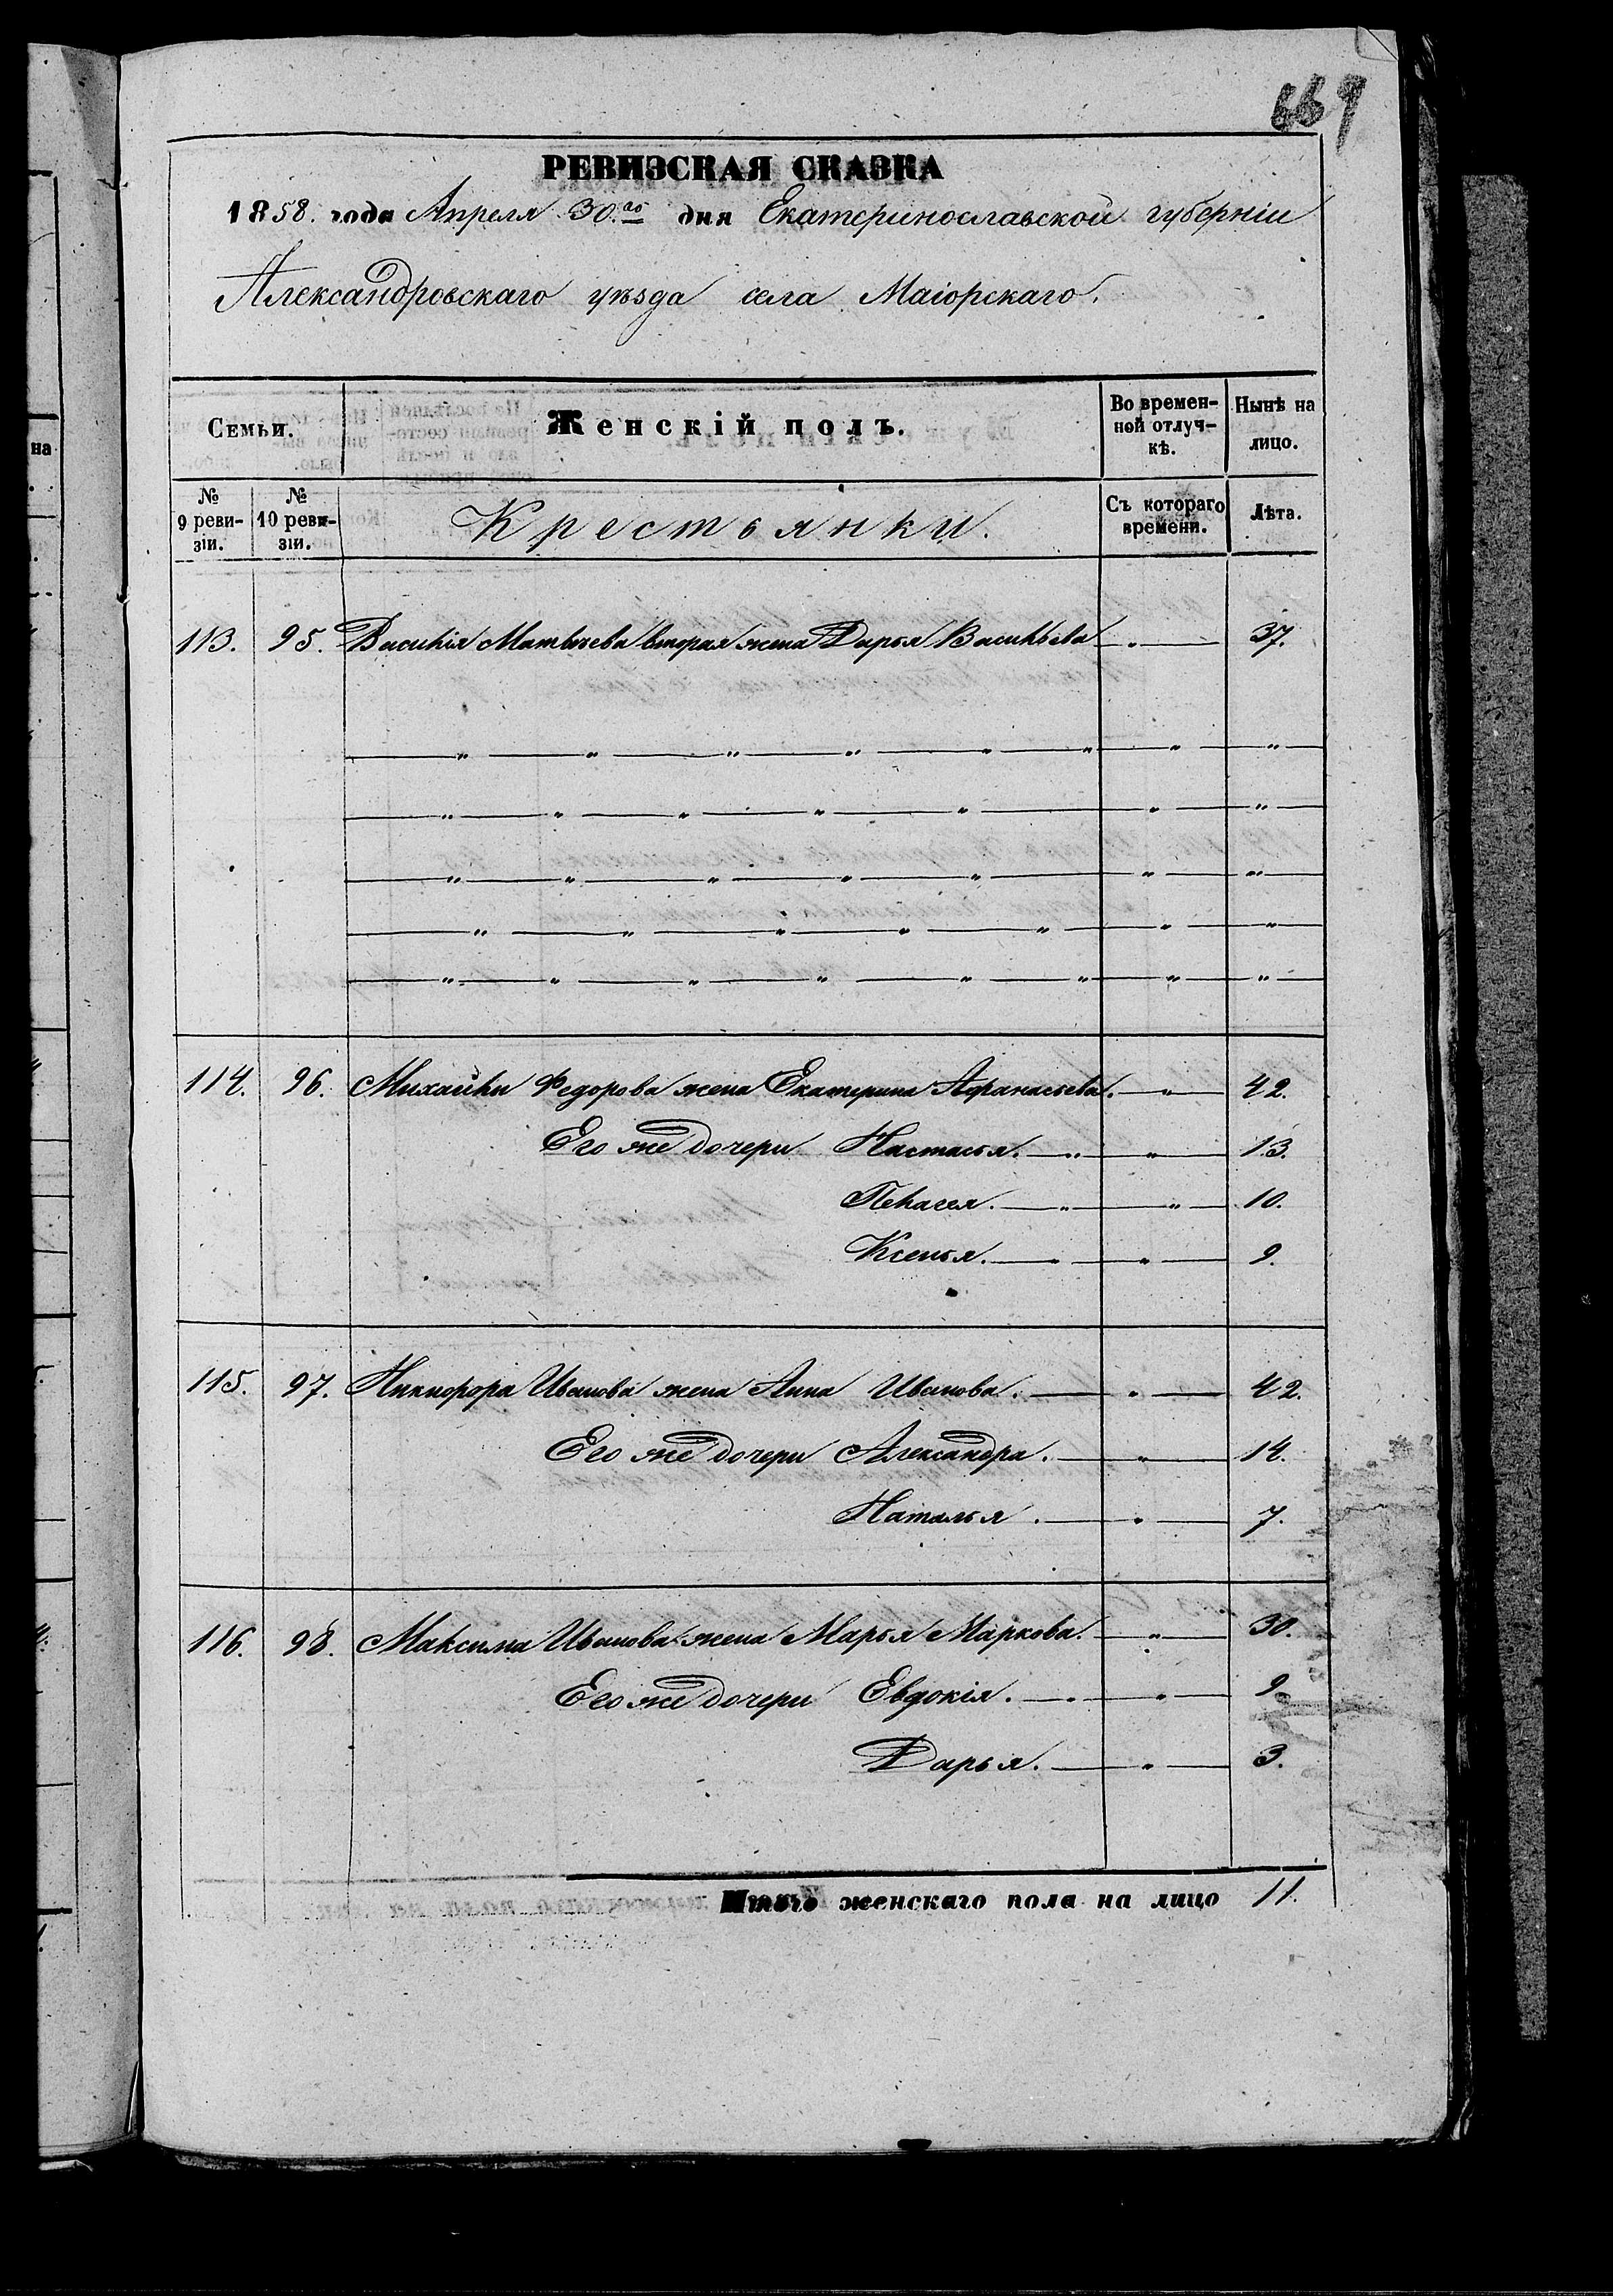 669
РЕВИЗСКАЯ СКАЗКА
1858. года Апреля 30.го дня Екатеринославской губерніи
Александровскаго уѣзда села Маіорскаго.
Семьи. Женскій полъ. Во времен-ной отлуч-кѣ. Нынѣ на лицо.
№ 9 реви-зіи. № 10 реви-зіи. Крестьянки. Съ котораго времени. Лѣта.
113. 95. Василія Матвѣева вторая жена Дарья Васильева 37.
114. 96. Михайлы Федорова жена Екатерина Афанасьева. 42.
Его же дочери Настасья. 13.
Пелагея. 10.
Ксенья. 9.
115. 97. Никифора Иванова жена Анна Иванова. 42.
Его же дочери Александра. 14.
Наталья. 7.
116. 98. Максима Иванова жена Марья Маркова. 30.
Его же дочери Евдокія. 9.
Дарья. 3.
Итого женскаго пола на лицо 11.